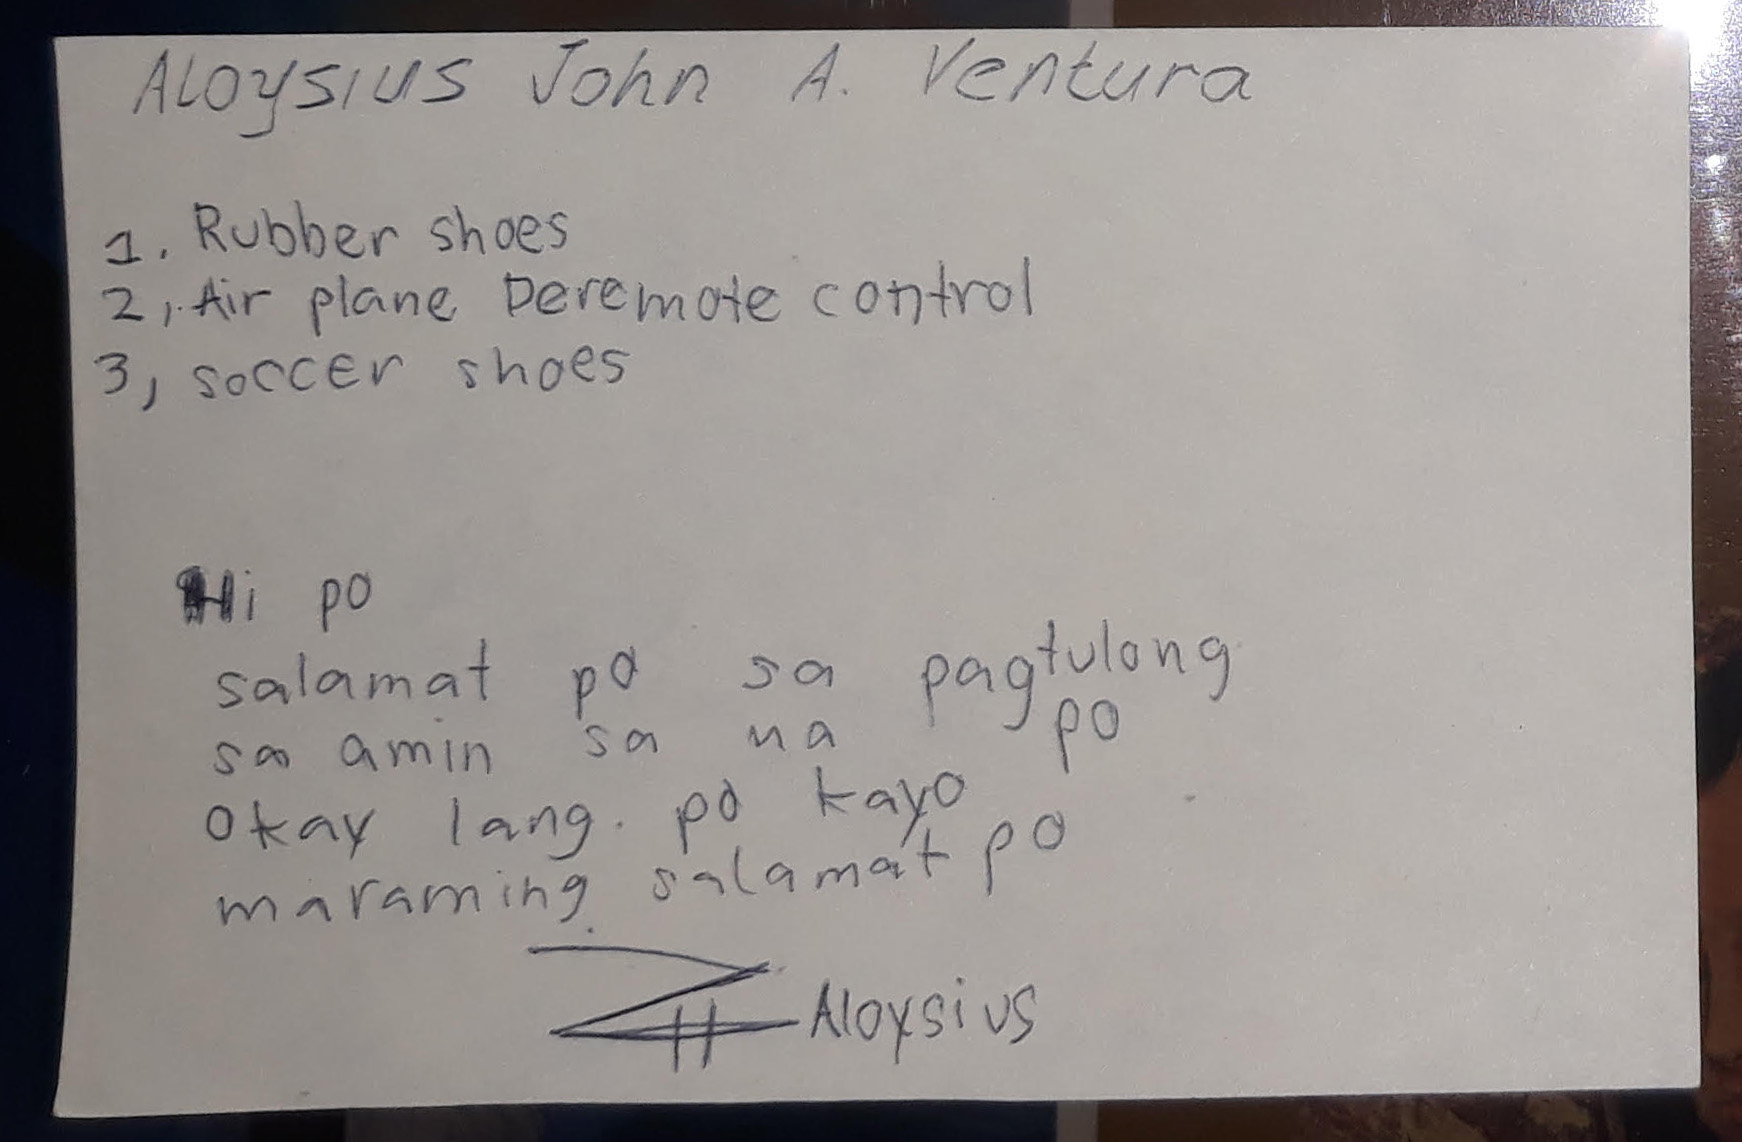 Aloysius John A. Ventura
1. Rubber shoes
2, Air plane Deremote control
3, soccer shoes
Hi po
salamat po sa pagtulong
sa amin sa na po
okay lang. po kayo
maraming salamat po
Aloysius